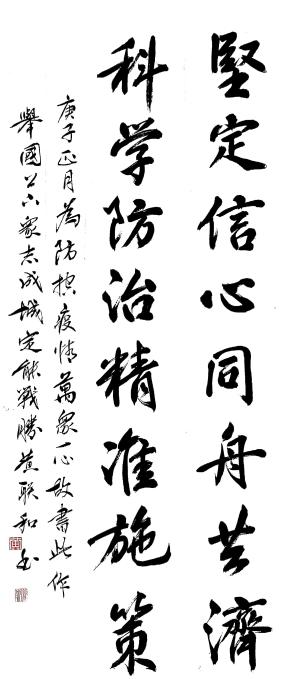 堅定信心同舟共濟
科学防治精准施策
庚子正月為防控疫情萬眾一心故書此作
舉國上下眾志成城定能戰勝黃联和书